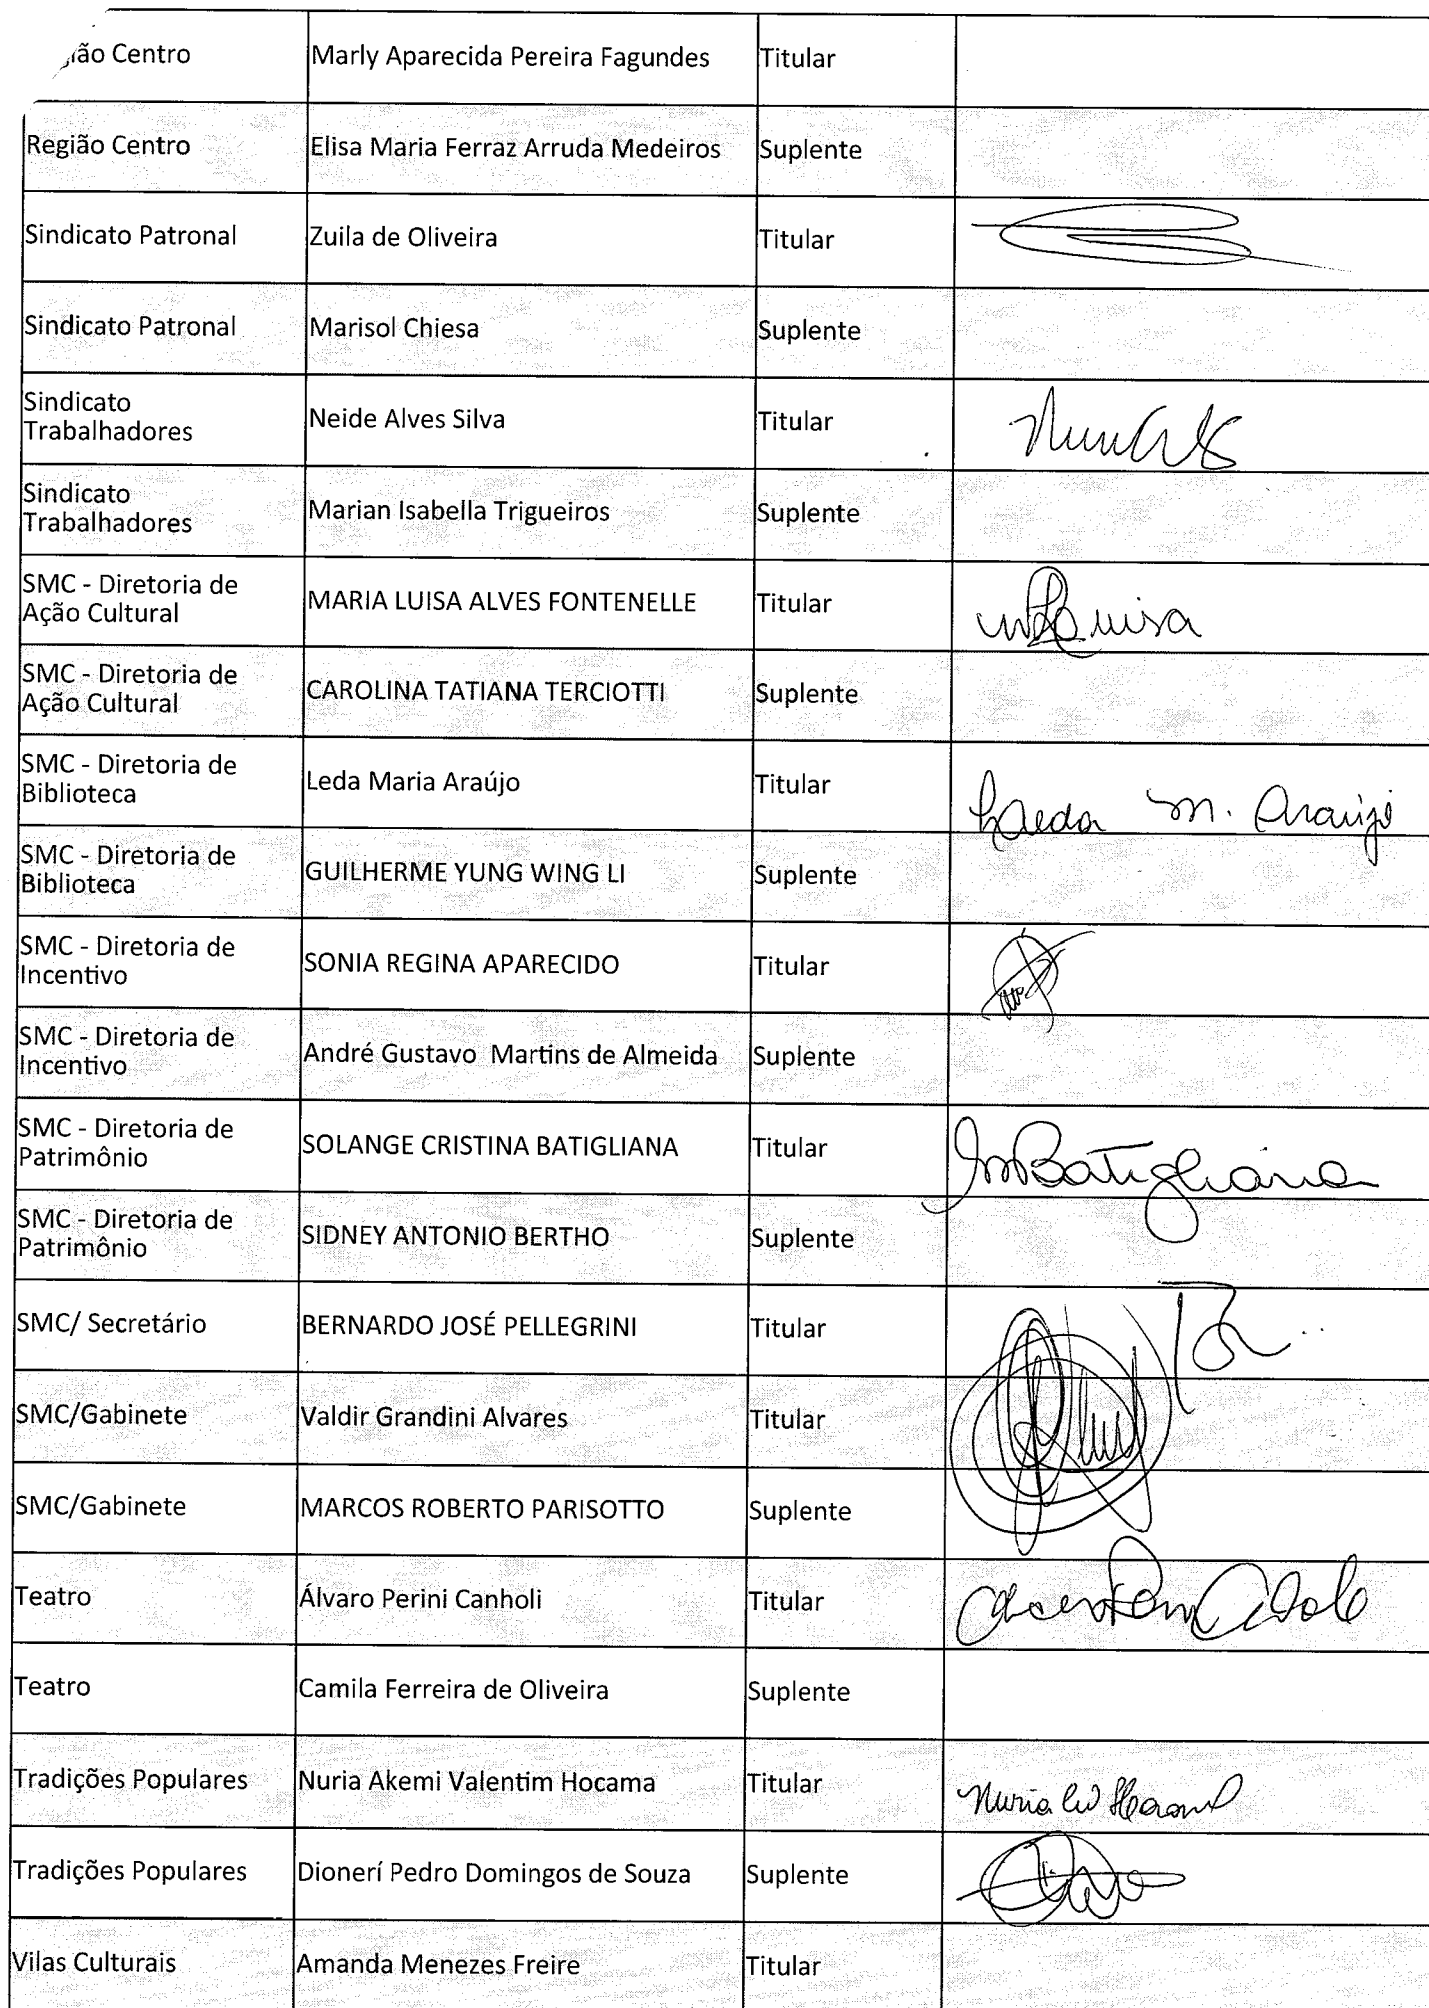 ião Centro Marly Aparecida Pereira Fagundes Titular
Região Centro Elisa Maria Ferraz Arruda Medeiros Suplente
Sindicato Patronal Zuila de Oliveira Titular
Sindicato Patronal Marisol Chiesa Suplente
Sindicato
Trabalhadores Neide Alves Silva Titular
Sindicato
Trabalhadores Marian Isabella Trigueiros Suplente
SMC - Diretoria de
Ação Cultural MARIA LUISA ALVES FONTENELLE Titular
SMC - Diretoria de
Ação Cultural CAROLINA TATIANA TERCIOTTI Suplente
SMC - Diretoria de
Biblioteca Leda Maria Araújo Titular Leda M. Araújo
SMC - Diretoria de
Biblioteca GUILHERME YUNG WING LI Suplente
SMC - Diretoria de
Incentivo SONIA REGINA APARECIDO Titular
SMC - Diretoria de
Incentivo André Gustavo Martins de Almeida Suplente
SMC - Diretoria de
Patrimônio SOLANGE CRISTINA BATIGLIANA Titular Batigliana
SMC - Diretoria de
Patrimônio SIDNEY ANTONIO BERTHO Suplente
SMC/ Secretário BERNARDO JOSÉ PELLEGRINI Titular
SMC/Gabinete Valdir Grandini Alvares Titular
SMC/Gabinete MARCOS ROBERTO PARISOTTO Suplente
Teatro Álvaro Perini Canholi Titular
Teatro Camila Ferreira de Oliveira Suplente
Tradições Populares Nuria Akemi Valentim Hocama Titular Nuria
Tradições Populares Dionerí Pedro Domingos de Souza Suplente
Vilas Culturais Amanda Menezes Freire Titular